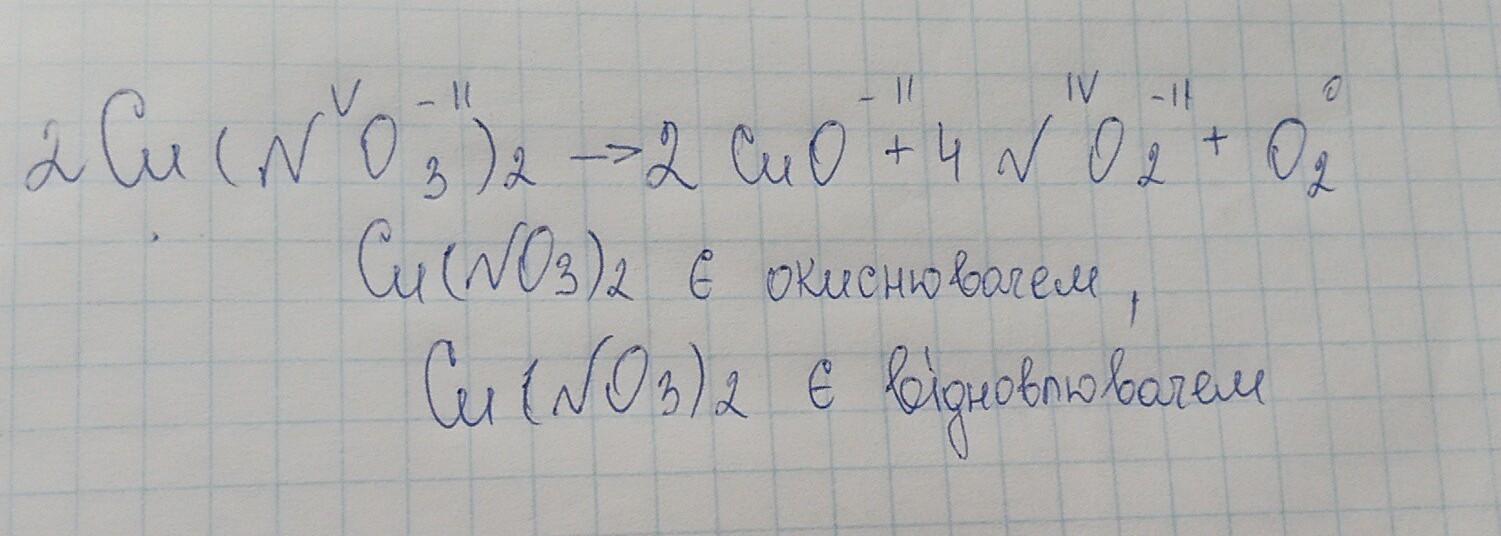 2Cu(N^V O^-II_3)_2 → 2 CuO^-II + 4 N^IV O^-II_2 + O^0_2
Cu(NO3)2 є окиснювачем,
Cu(NO3)2 є відновлювачем